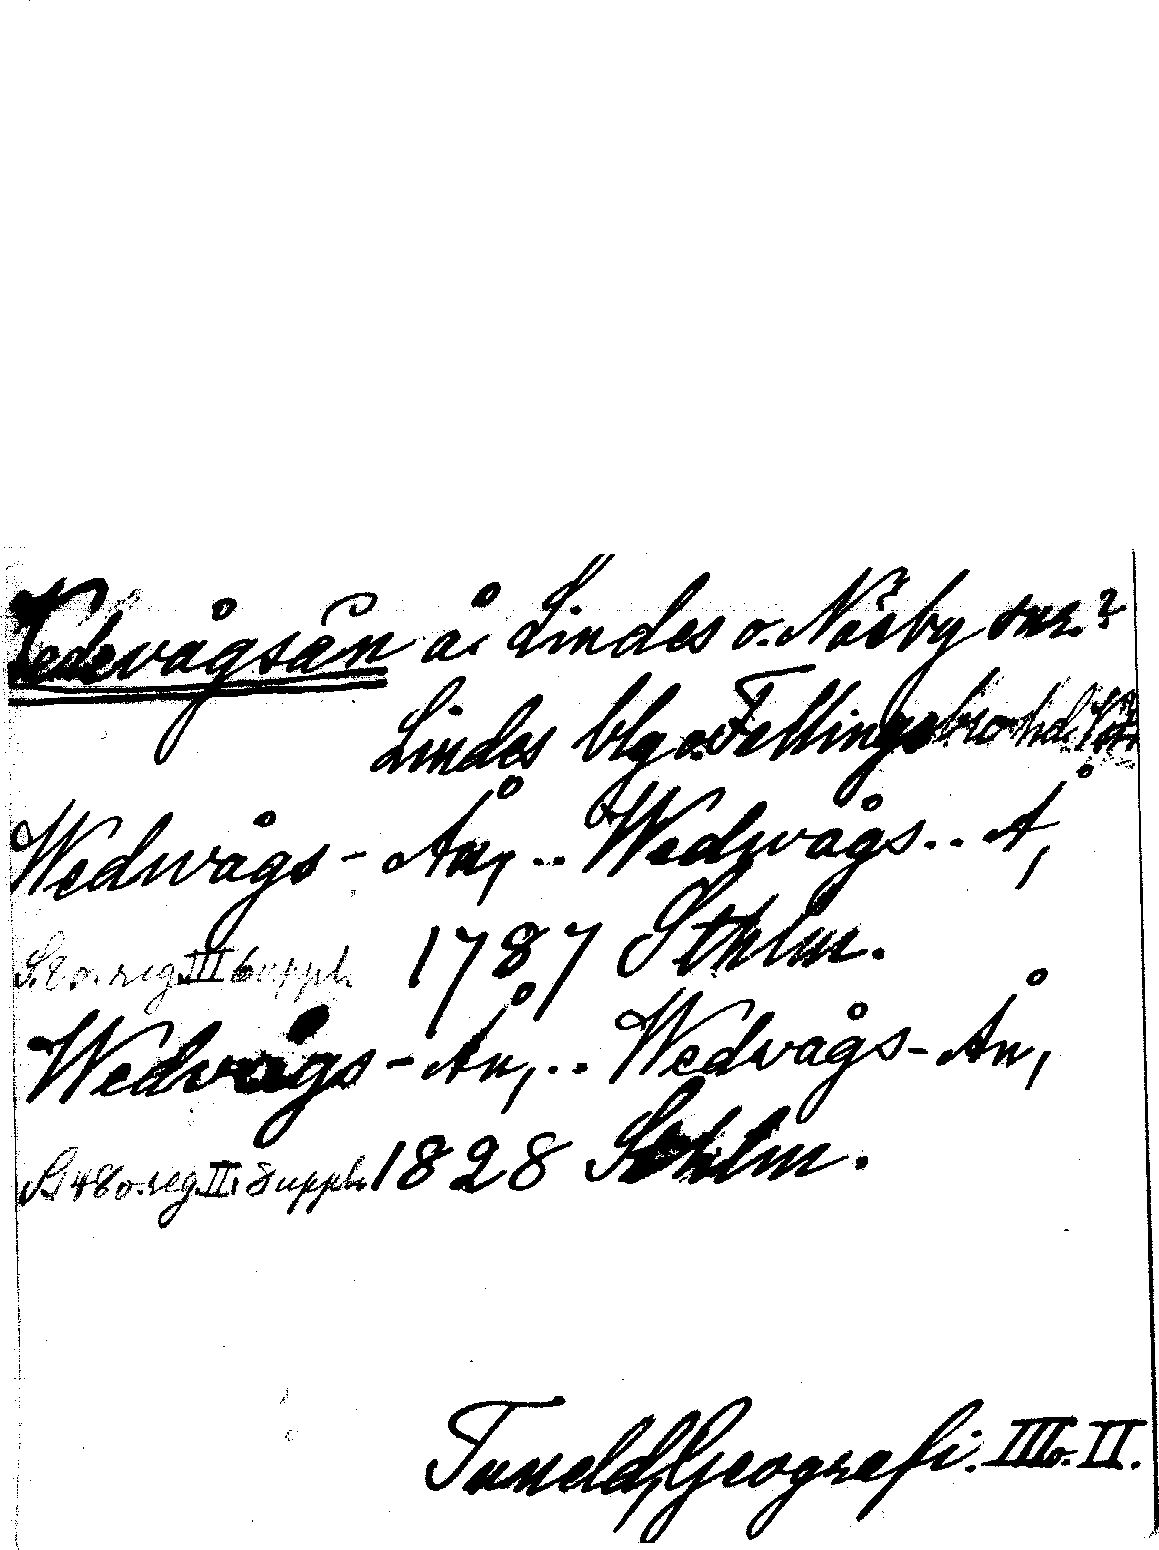 Vedevågsån å. Lindes o. Näsby snr?
Lindes blg o. Fellingsbro hd.
Wedwågs-Ån, .. Wedwågs.. Å,
1787 Sthlm.
S. 80. reg. III Suppl.
Wedwågs-Ån, .. Wedwågs-Ån,
S. 48 o. reg. II. Suppl. 1828 Sthlm.
Tuneld, Geografi. III o. II.